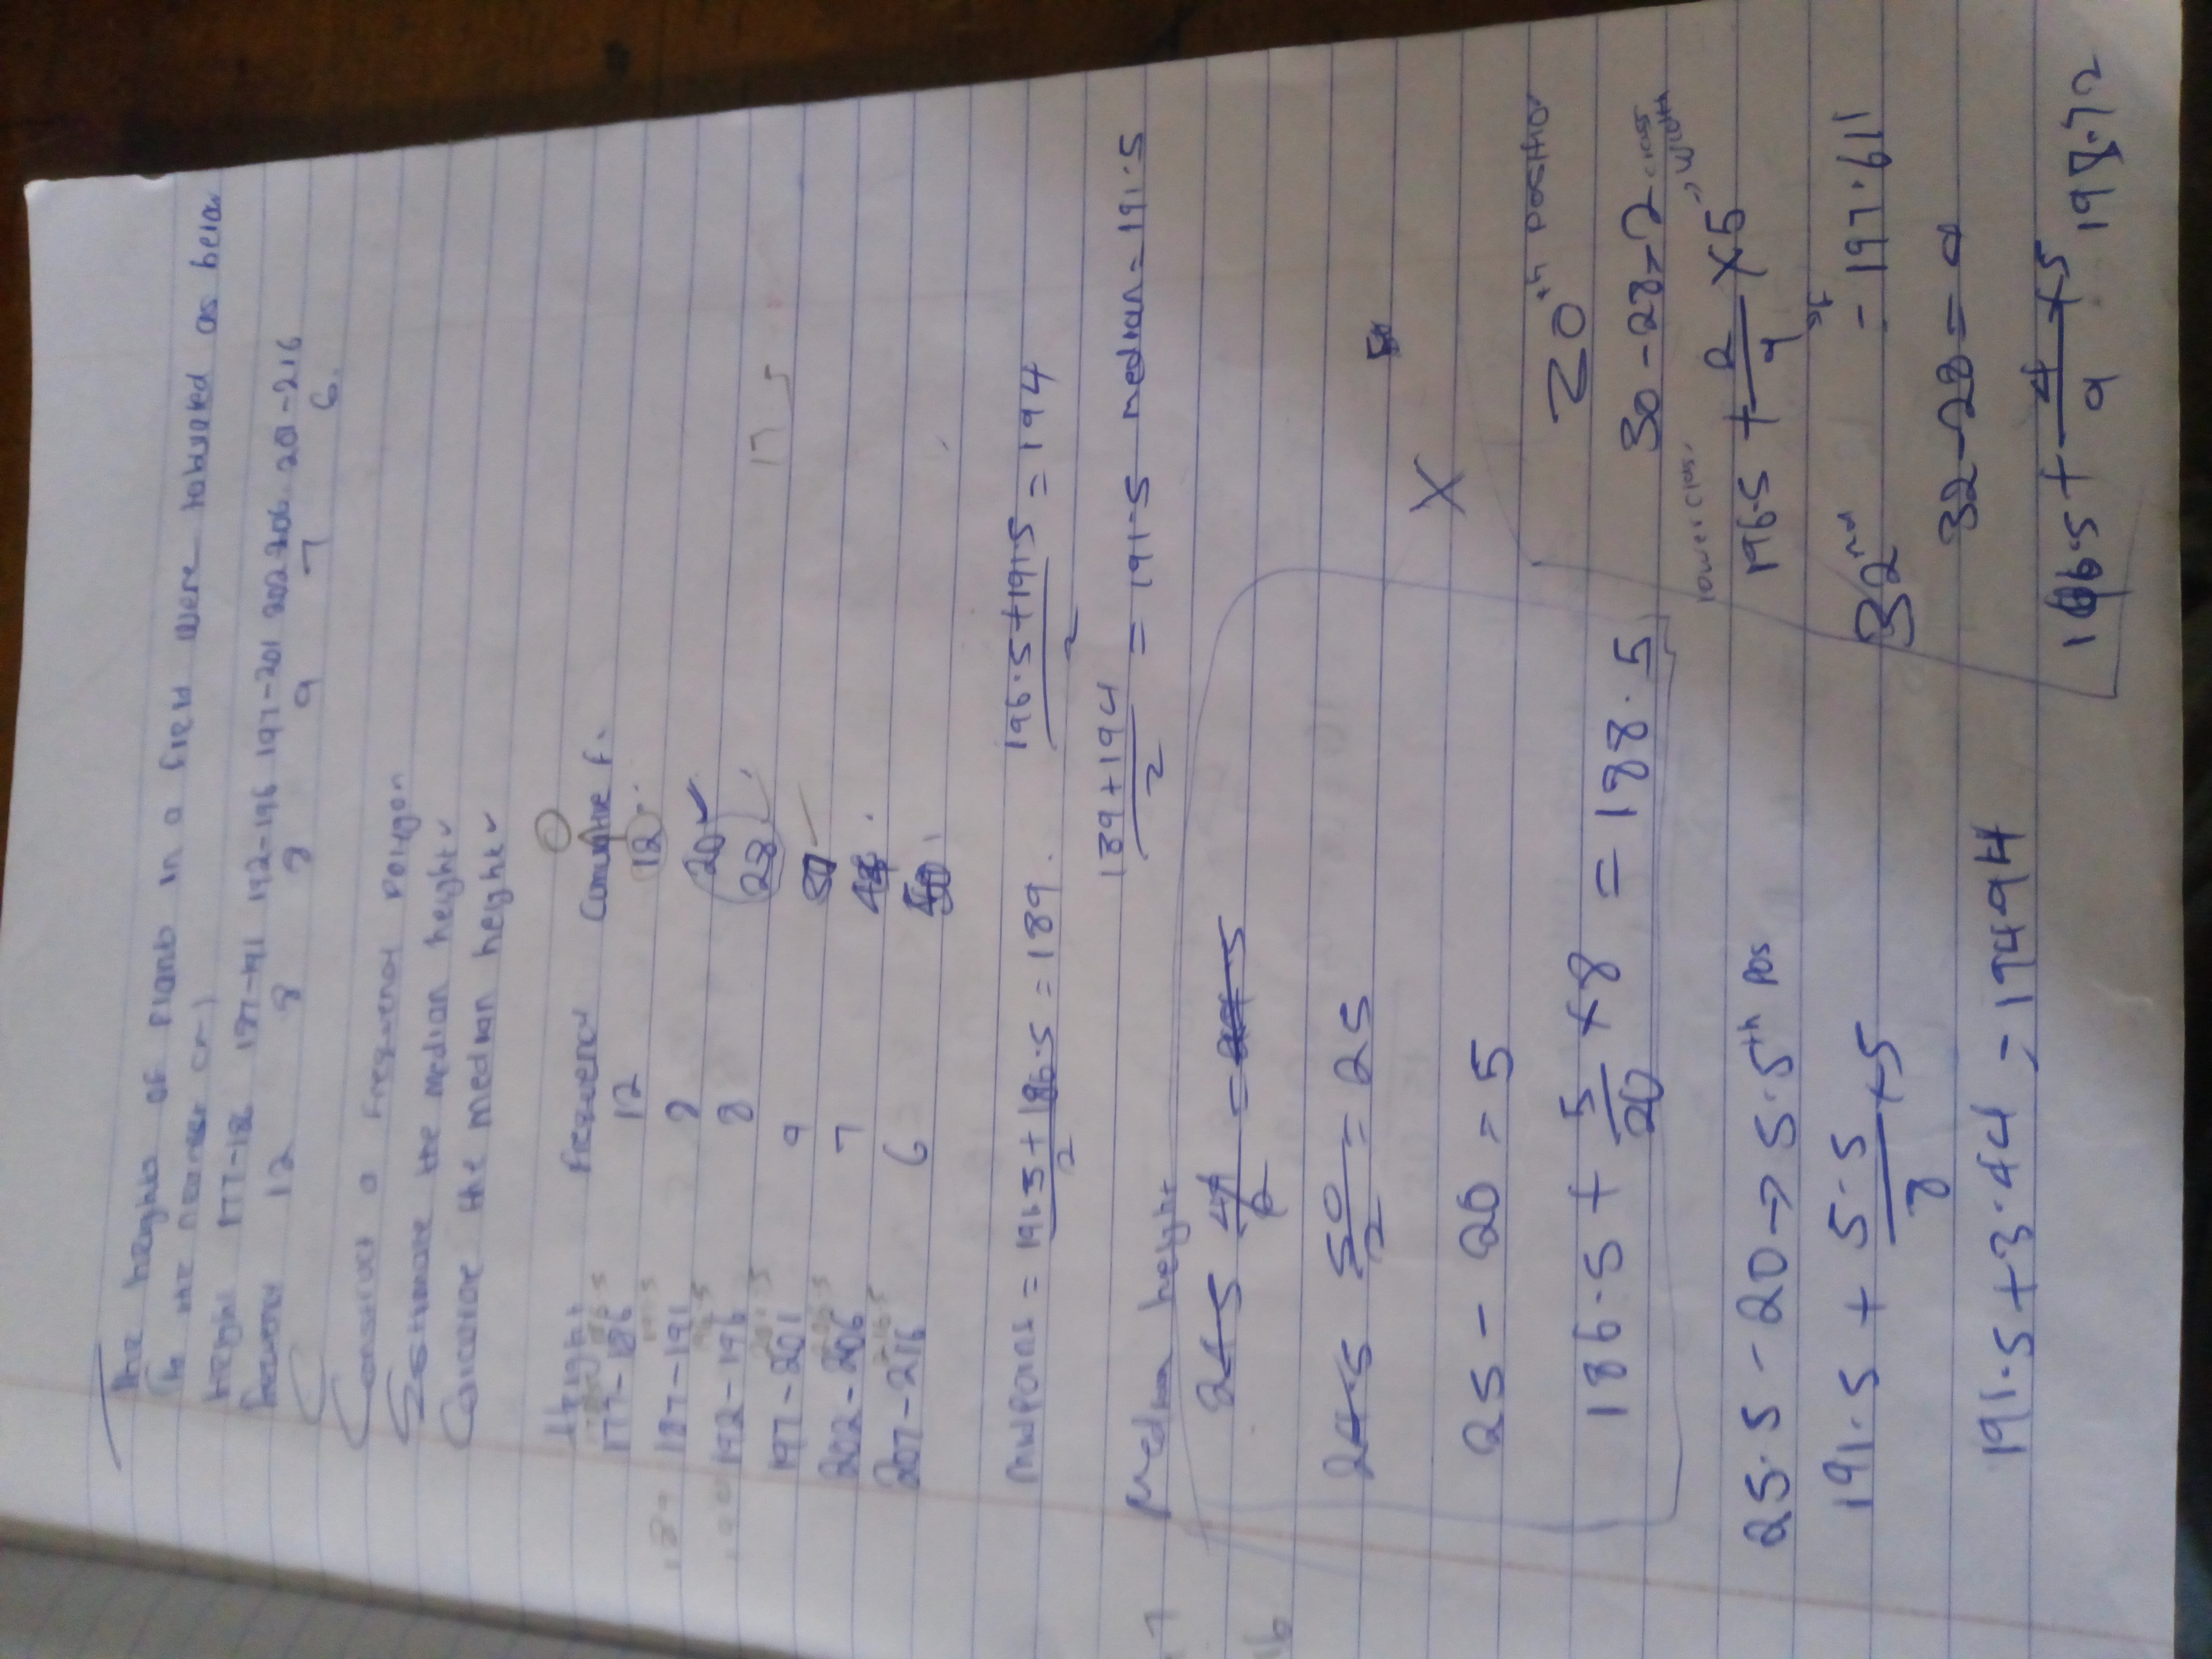 The heights of plants in a field were tabulated as below
(to the nearest cm)
Height 177-186 187-191 192-196 197-201 202-206 207-216
Frequency 12 8 8 9 7 6.
Construct a frequency polygon
Estimate the median height ✓
Calculate the median height ✓
Height Frequency Cumulative F.
177-186 12 12
187-191 8 20 ✓
192-196 8 28
197-201 9 37
17.5
202-206 7 44
207-216 6 50
midpoints = 191.5 + 186.5 / 2 = 189. 196.5 + 191.5 / 2 = 194
189 + 194 / 2 = 191.5 median = 191.5
Median height
50 / 2 = 25
25 - 20 = 5
X
186.5 + 5/20 × 8 = 188.5
25.5 - 20 → 5.5th pos
191.5 + 5.5/8 × 5
191.5 + 3.44 = 194.94
30th position
30 - 28 = 2 class width
lower class
196.5 + 2/9 × 5
→ f
= 197.611
32nd
32 - 28 = 4
196.5 + 4/9 × 5 198.72